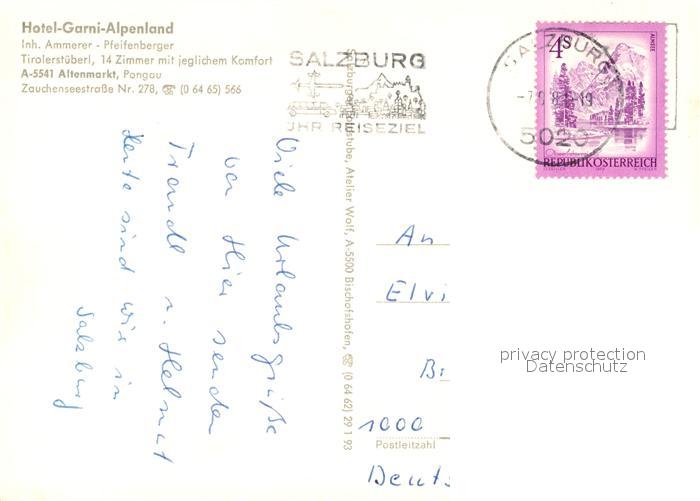 Hotel-Garni-Alpenland
Inh. Ammerer - Pfeifenberger
Tirolerstüberl, 14 Zimmer mit jeglichem Komfort
A-5541 Altenmarkt, Pongau
Zauchenseestraße Nr. 278, ☎ (0 64 65) 566
SALZBURG
IHR REISEZIEL
SALZBURG
5020
4S
ALMSEE
REPUBLIK ÖSTERREICH
Viele Urlaubsgrüße
von Hier senden
Traudl u. Helmut
Heute sind wir in
Salzburg
Atelier Wolf, A-5500 Bischofshofen, ☎ (0 64 62) 29 1 93
An
Elvi
B
1000
Postleitzahl
Deuts
privacy protection
Datenschutz